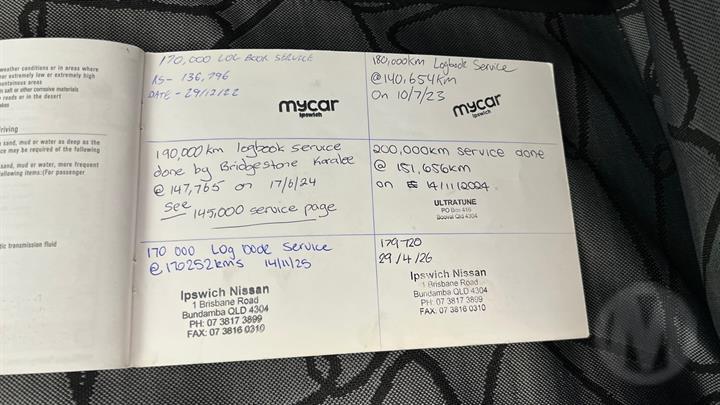 weather conditions or in areas where
ear extremely low or extremely high
ountainous areas
n salt or other corrosive materials
roads or in the desert
akes
riving
sand, mud or water as deep as the
ce may be required of the following
sand, mud or water, more frequent
ollowing items:(For passenger
tic transmission fluid
170,000 LOG BOOK SERVICE
AS- 136,796
DATE - 29/12/22
mycar
Ipswich
180,000km Logbook Service
@140,654km
On 10/7/23
mycar
Ipswich
190,000km logbook service
done by Bridgestone Karalee
@ 147,765 on 17/6/24
see 145,000 service page
200,000km service done
@ 151,656km
on 14/11/2024
ULTRATUNE
PO Box 416
Booval Qld 4304
170 000 Log book Service
@170252km's 14/11/25
Ipswich Nissan
1 Brisbane Road
Bundamba QLD 4304
PH: 07 3817 3899
FAX: 07 3816 0310
179720
29/4/26
Ipswich Nissan
1 Brisbane Road
Bundamba QLD 4304
PH: 07 3817 3899
FAX: 07 3816 0310
M